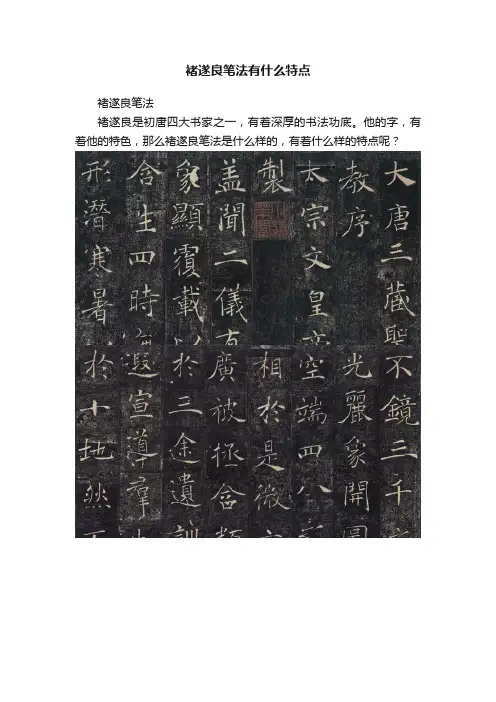 褚遂良笔法有什么特点
褚遂良笔法
褚遂良是初唐四大书家之一，有着深厚的书法功底。他的字，有
着他的特色，那么褚遂良笔法是什么样的，有着什么样的特点呢？
大唐三藏聖
教序
太宗文皇帝
製
盖聞二儀有
象顯覆載以
含生四時無
形潛寒暑
不鏡三千
光麗象開圖
空端四八
相於是微
廣被拯含類
於三途遺訓
遐宣導羣
於十地然